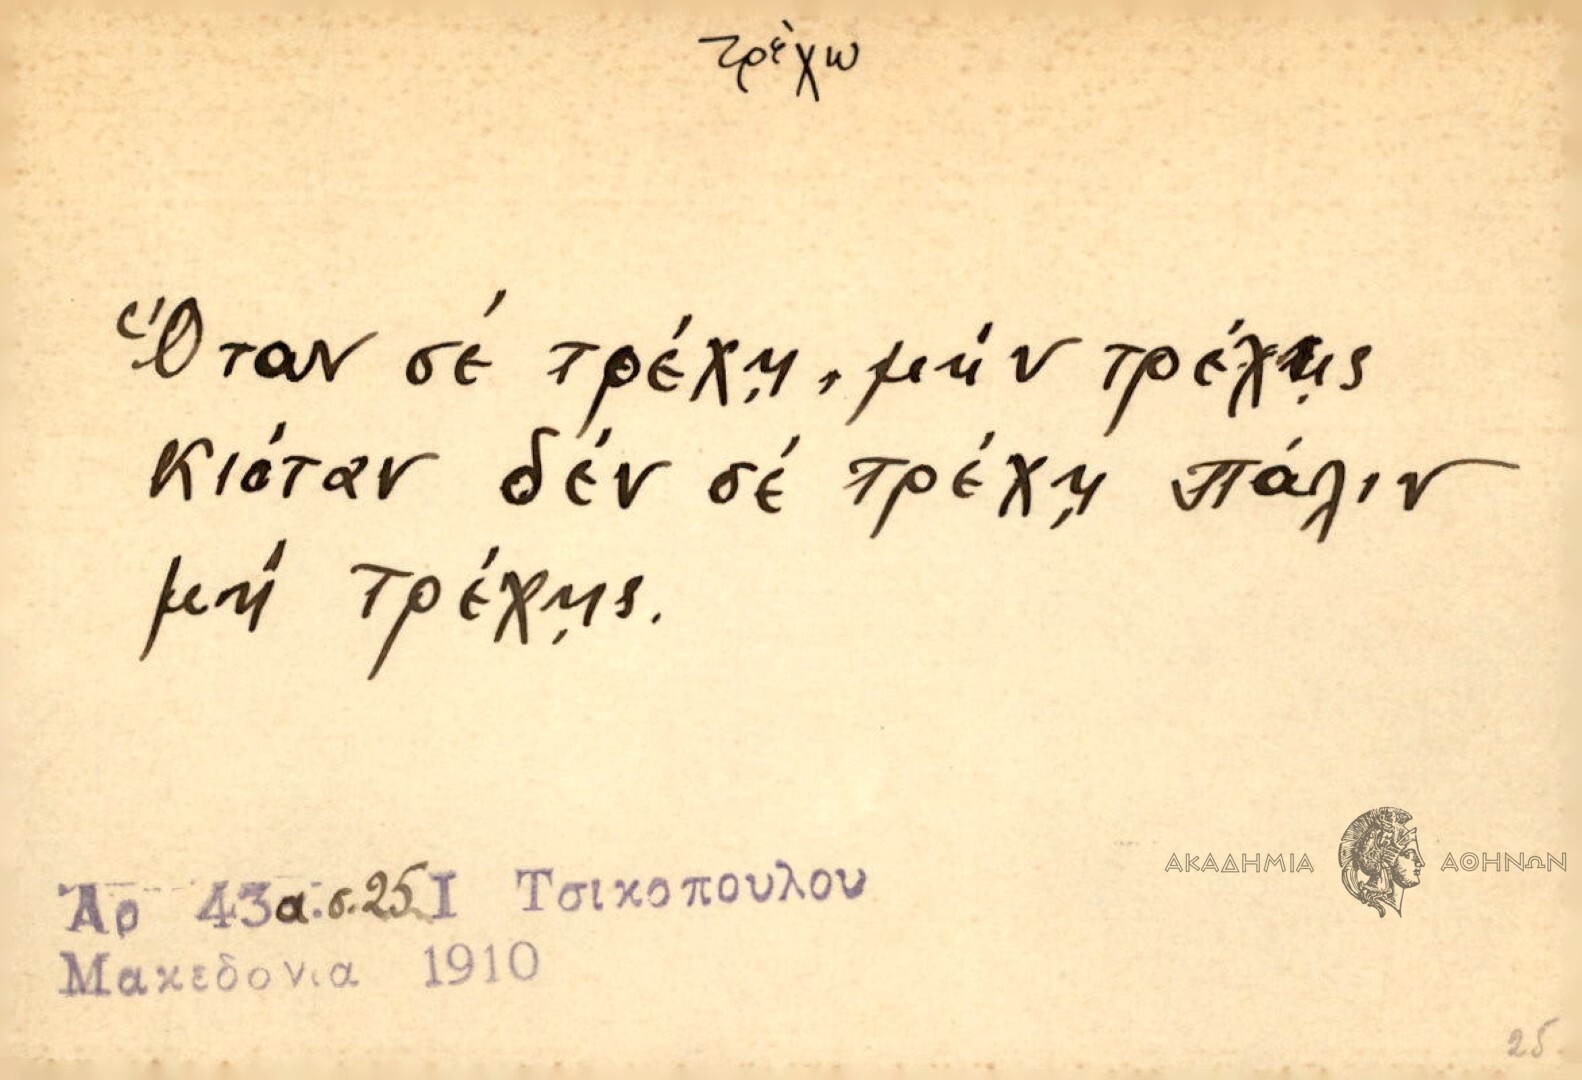 τρέχω
Ὅταν σέ τρέχῃ, μήν τρέχῃς
κιόταν δέν σέ τρέχῃ πάλιν
μή τρέχῃς.
Ἀρ 43α.σ.25 Ι Τσικοπουλου
Μακεδονια 1910
ΑΚΑΔΗΜΙΑ ΑΘΗΝΩΝ
25